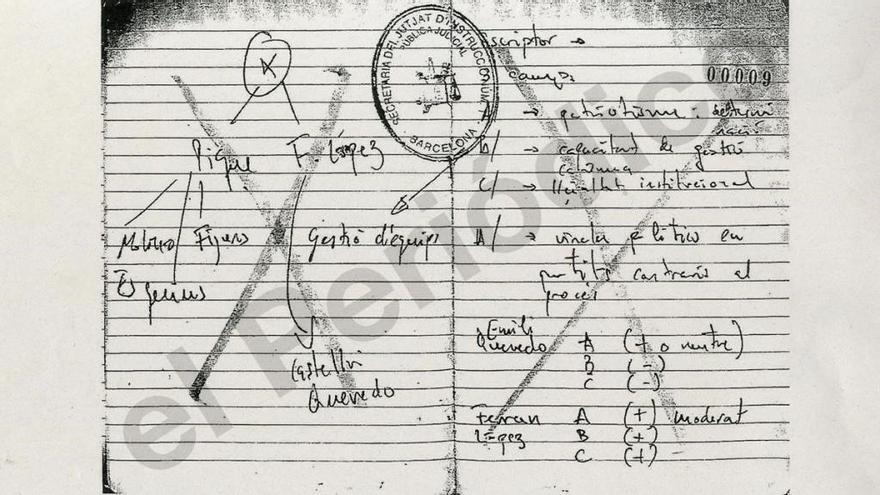 A
Pique F. López
Figueres
Gestió d'equips
Castellví
Quevedo
SECRETARIA DEL JUTJAT D'INSTRUCCIÓ NÚM
PÚBLICA JUDICIAL
BARCELONA
scriptor →
00009
A/ → patriotisme:
B/ → capacitat de gestió
C/ → lleialtat institucional
D/ → vincle político en
partits contraris al
procés
Emili
Quevedo A (+ o neutre)
B (-)
C (-)
Ferran A (+) moderat
López B (+)
C (+)
el Periódico